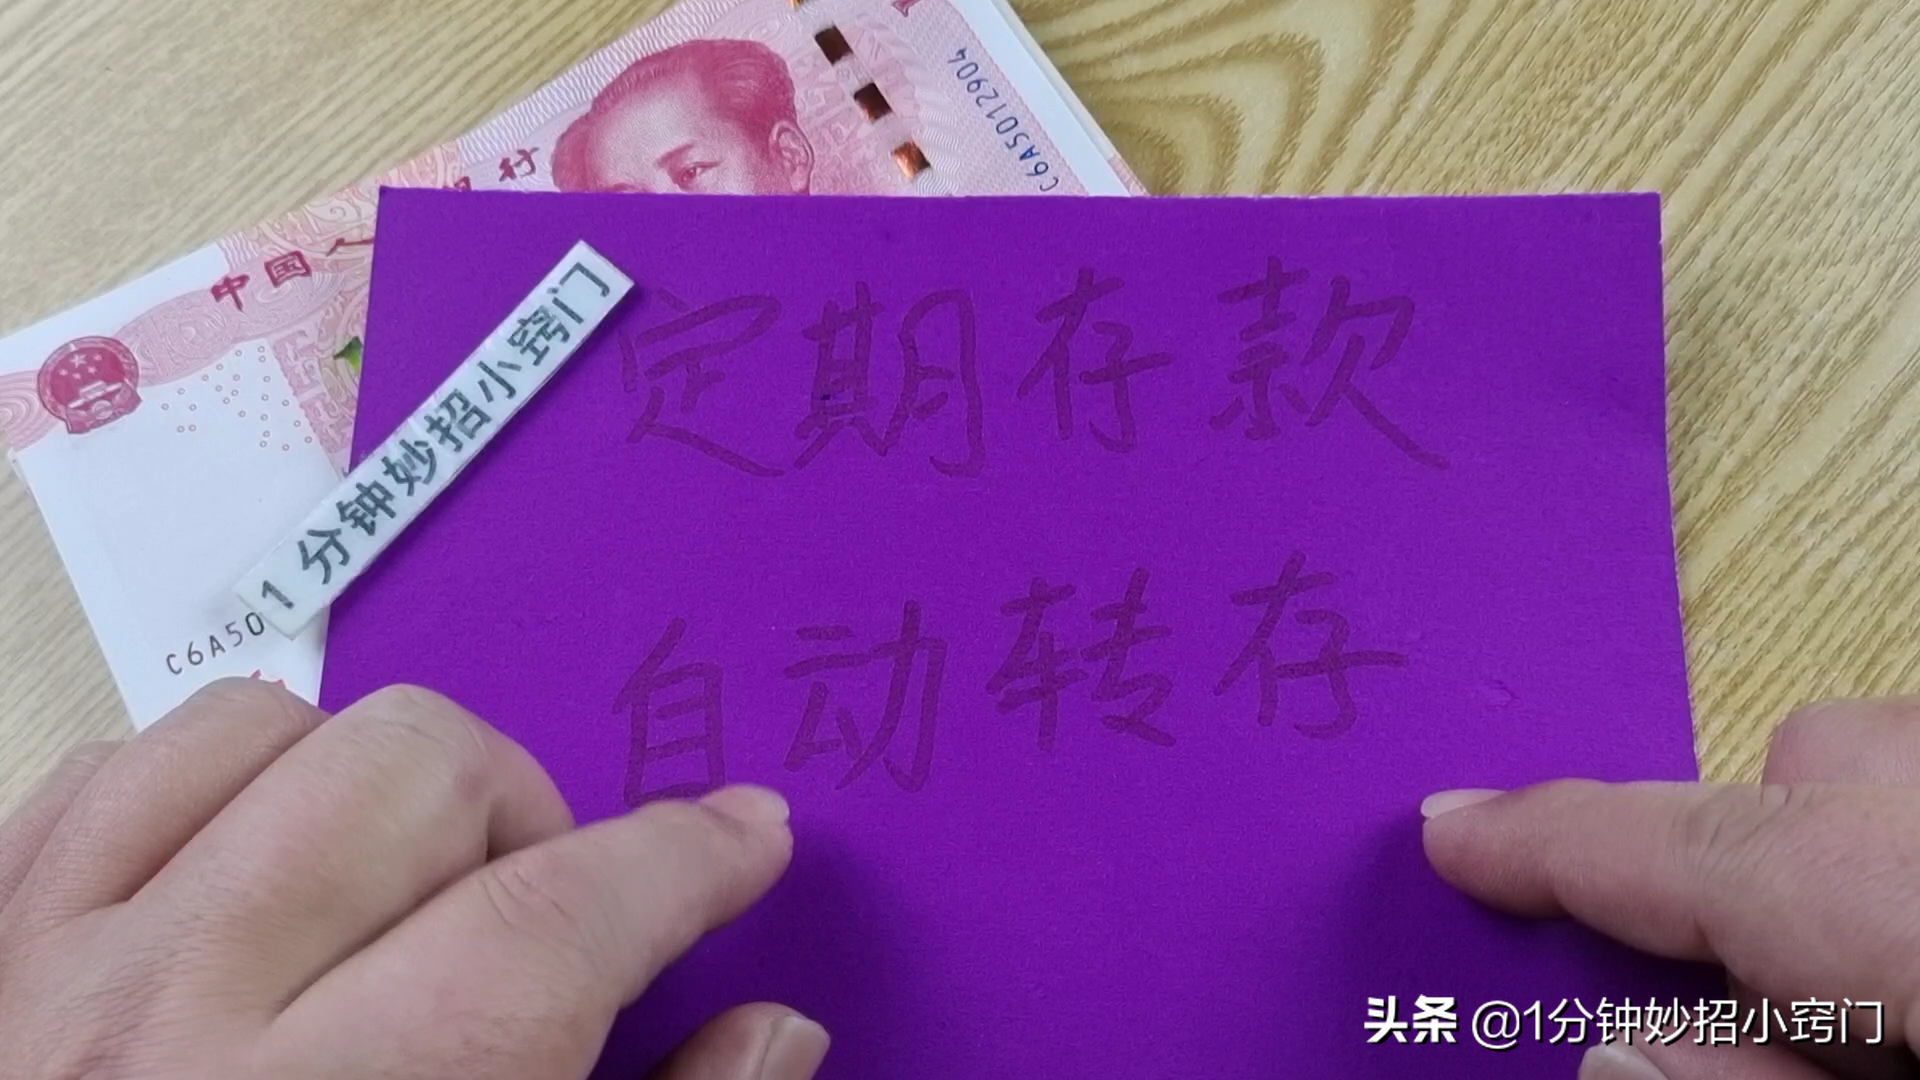 中国人
银行
C6A5012904
1分钟妙招小窍门
定期存款
自动转存
C6A50
头条 @1分钟妙招小窍门